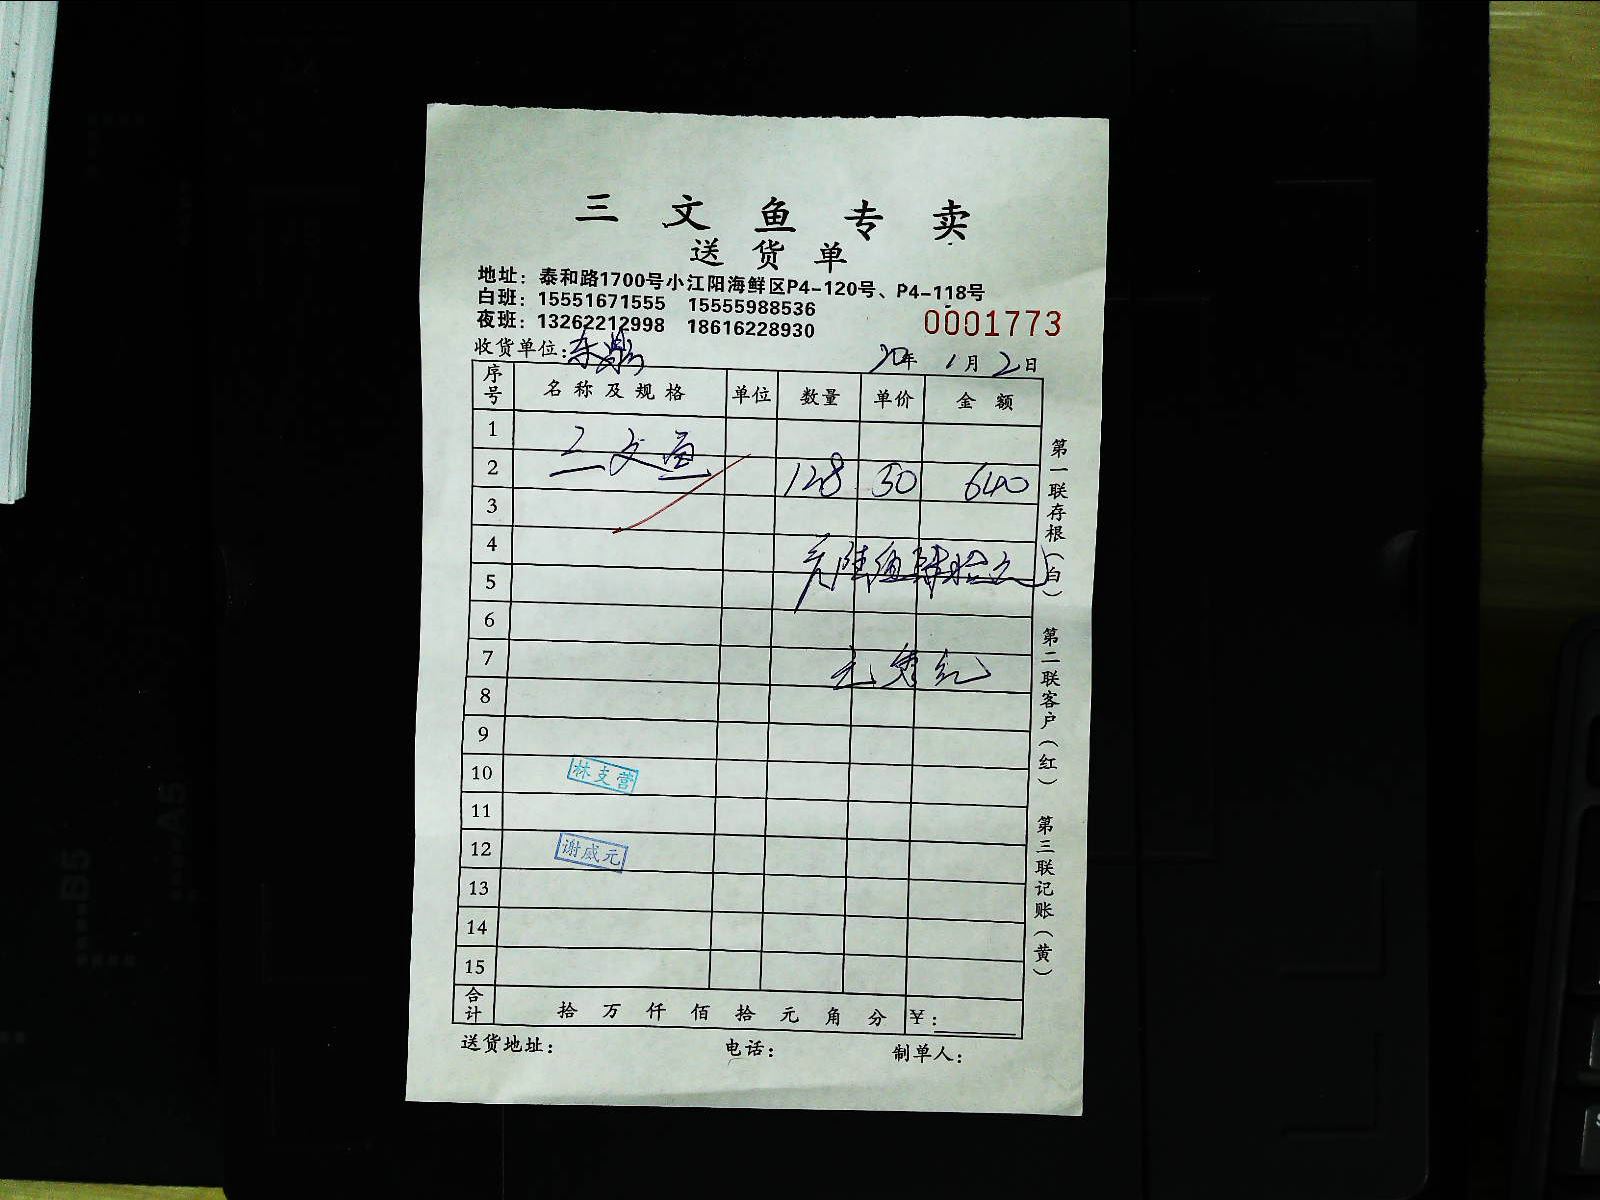 三文鱼专卖
送货单
地址：泰和路1700号小江阳海鲜区P4-120号、P4-118号
白班：15551671555 15555988536
夜班：13262212998 18616228930
0001773
收货单位：东 20年 1月2日
序号 名称及规格 单位 数量 单价 金额
1
2 三文鱼 128 50 640
3
4
5
6
7
8
9
10 林支营
11
12 谢威元
13
14
15
合计 拾 万 仟 佰 拾 元 角 分 ¥：
送货地址： 电话： 制单人：
第一联存根（白） 第二联客户（红） 第三联记账（黄）